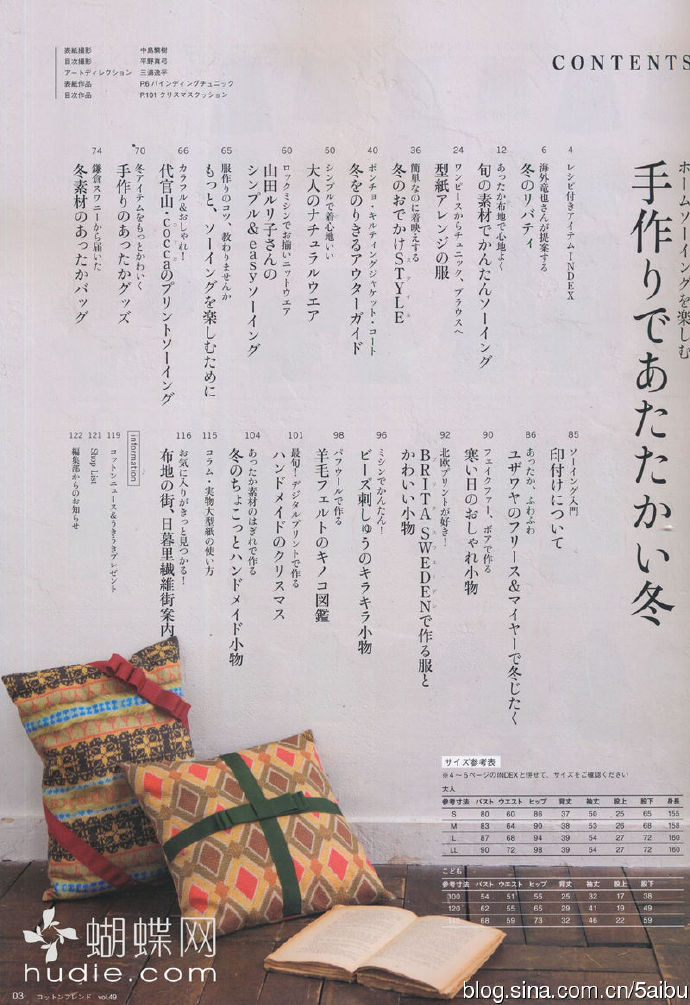 表紙撮影 中島繁樹
目次撮影 平野真弓
アートディレクション 三浦逸平
表紙作品 P.6バインディングチュニック
目次作品 P.101クリスマスクッション
CONTENTS
ホームソーイングを楽しむ
手作りであたたかい冬
4
レシピ付きアイテムINDEX
6
海外竜也さんが提案する
冬のリバティ
12
あったか布地で心地よく
旬の素材でかんたんソーイング
24
ワンピースからチュニック、ブラウスへ
型紙アレンジの服
36
簡単なのに着映えする
冬のおでかけSTYLE
40
ポンチョ・キルティングジャケット・コート
冬をのりきるアウターガイド
50
シンプルで着心地いい
大人のナチュラルウエア
60
ロックミシンでお揃いニットウエア
山田ルリ子さんの
シンプル&easyソーイング
65
服作りのコツ、教わりませんか
もっと、ソーイングを楽しむために
66
カラフル&おしゃれ!
代官山・coccaのプリントソーイング
70
冬アイテムをもっとかわいく
手作りのあったかグッズ
74
鎌倉スワニーから届いた
冬素材のあったかバッグ
85
ソーイング入門
印付けについて
86
あったか、ふわふわ
ユザワヤのフリース&マイヤーで冬じたく
90
フェイクファー、ボアで作る
寒い日のおしゃれ小物
92
北欧プリントが好き!
BRITA SWEDENで作る服と
かわいい小物
96
ミシンでかんたん!
ビーズ刺しゅうのキラキラ小物
98
パフウールで作る
羊毛フェルトのキノコ図鑑
101
最旬!デジタルプリントで作る
ハンドメイドのクリスマス
104
あったか素材のはぎれで作る
冬のちょこっとハンドメイド小物
115
コラム・実物大型紙の使い方
116
お気に入りがきっと見つかる!
布地の街、日暮里繊維街案内
information
119
コットンニュース&うきうきプレゼント
121
Shop List
122
編集部からのお知らせ
サイズ参考表
※4〜5ページのINDEXと併せて、サイズをご確認ください
大人
参考寸法 バスト ウエスト ヒップ 背丈 袖丈 股上 股下 身長
S 80 60 86 37 50 25 65 155
M 83 64 90 38 53 26 68 158
L 87 68 94 39 54 27 72 160
LL 90 72 98 39 54 27 72 160
こども
参考寸法 バスト ウエスト ヒップ 背丈 袖丈 股上 股下
100 54 51 55 25 32 17 38
120 62 55 65 29 41 19 49
140 68 59 73 32 46 22 59
蝴蝶网
hudie.com
03 コットンフレンド vol.49
blog.sina.com.cn/5aibu